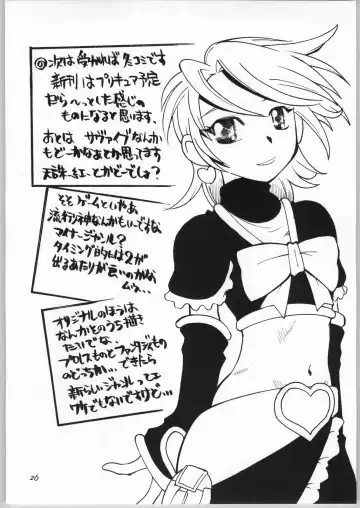 ◎次は受かれば冬コミです
新刊はプリキュア予定
せらへっとした感じの
ものになると思います、
あとは サヴァイブなんか
もどーかなぁとか思ってます
天誅 紅 とかどーでしょ?
そそ ゲームといやぁ
流行り神なんかもいいですね
マイナージャンル?
タイミング的には2が
出るあたりが良いのかな
ムゥ…
オリジナルのほうは
なんかとのうち描き
たいでな、
プロレスものとファンタジィもの
のどちらか…できたら
新らしいジャンルってェ
ワケでもないですけど…
26